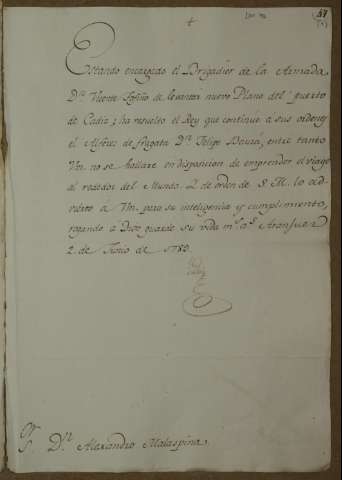 +
57
Estando encargado el Brigadier de la Armada
Dn. Vicente Tofiño de levantar nuevo Plano del puerto
de Cadiz; ha resuelto el Rey que continue a sus ordenes
el Alferez de fragata Dn. Felipe Bauzá, entre tanto
Vm. no se hallare en disposicion de emprender el viage
al rededor del Mundo. Y de orden de S. M. lo
a Vm. para su inteligencia y cumplimiento,
rogando a Dios guarde su vida ms. as. Aranjuez
2 de Junio de 1789.
Sr. Dn. Alexandro Malaspina.